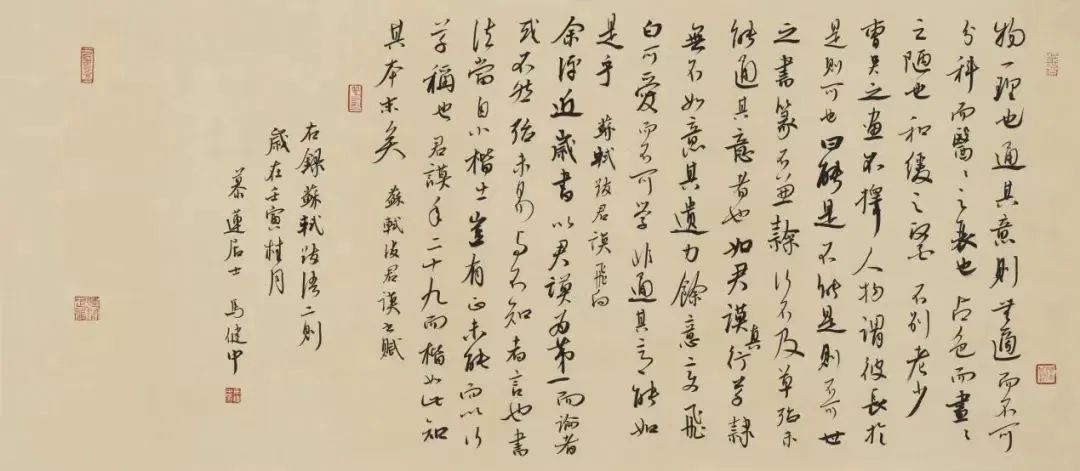 物一理也通其意則無適而不可
分科而醫〻之衰也占色而畫〻
之陋也和緩之醫不別老少
曹吴之畫不擇人物謂彼長於
是則可也曰能是不能是則不可世
之書篆不兼隸行不及草殆未
能通其意者也如君謨真行草隸
無不如意其遺力餘意變飛
白可愛而不可学非通其意能如
是乎 蘇軾跋君謨飛白
余評近歲書以君謨為第一而論者
或不然殆未易与不知者言也書
法當自小楷出豈有正未能而以行
草稱也君謨年二十九而楷如此知
其本末矣 蘇軾跋君謨書賦
右錄蘇軾跋語二則
歲在壬寅桂月
慕蓮居士 馬健中